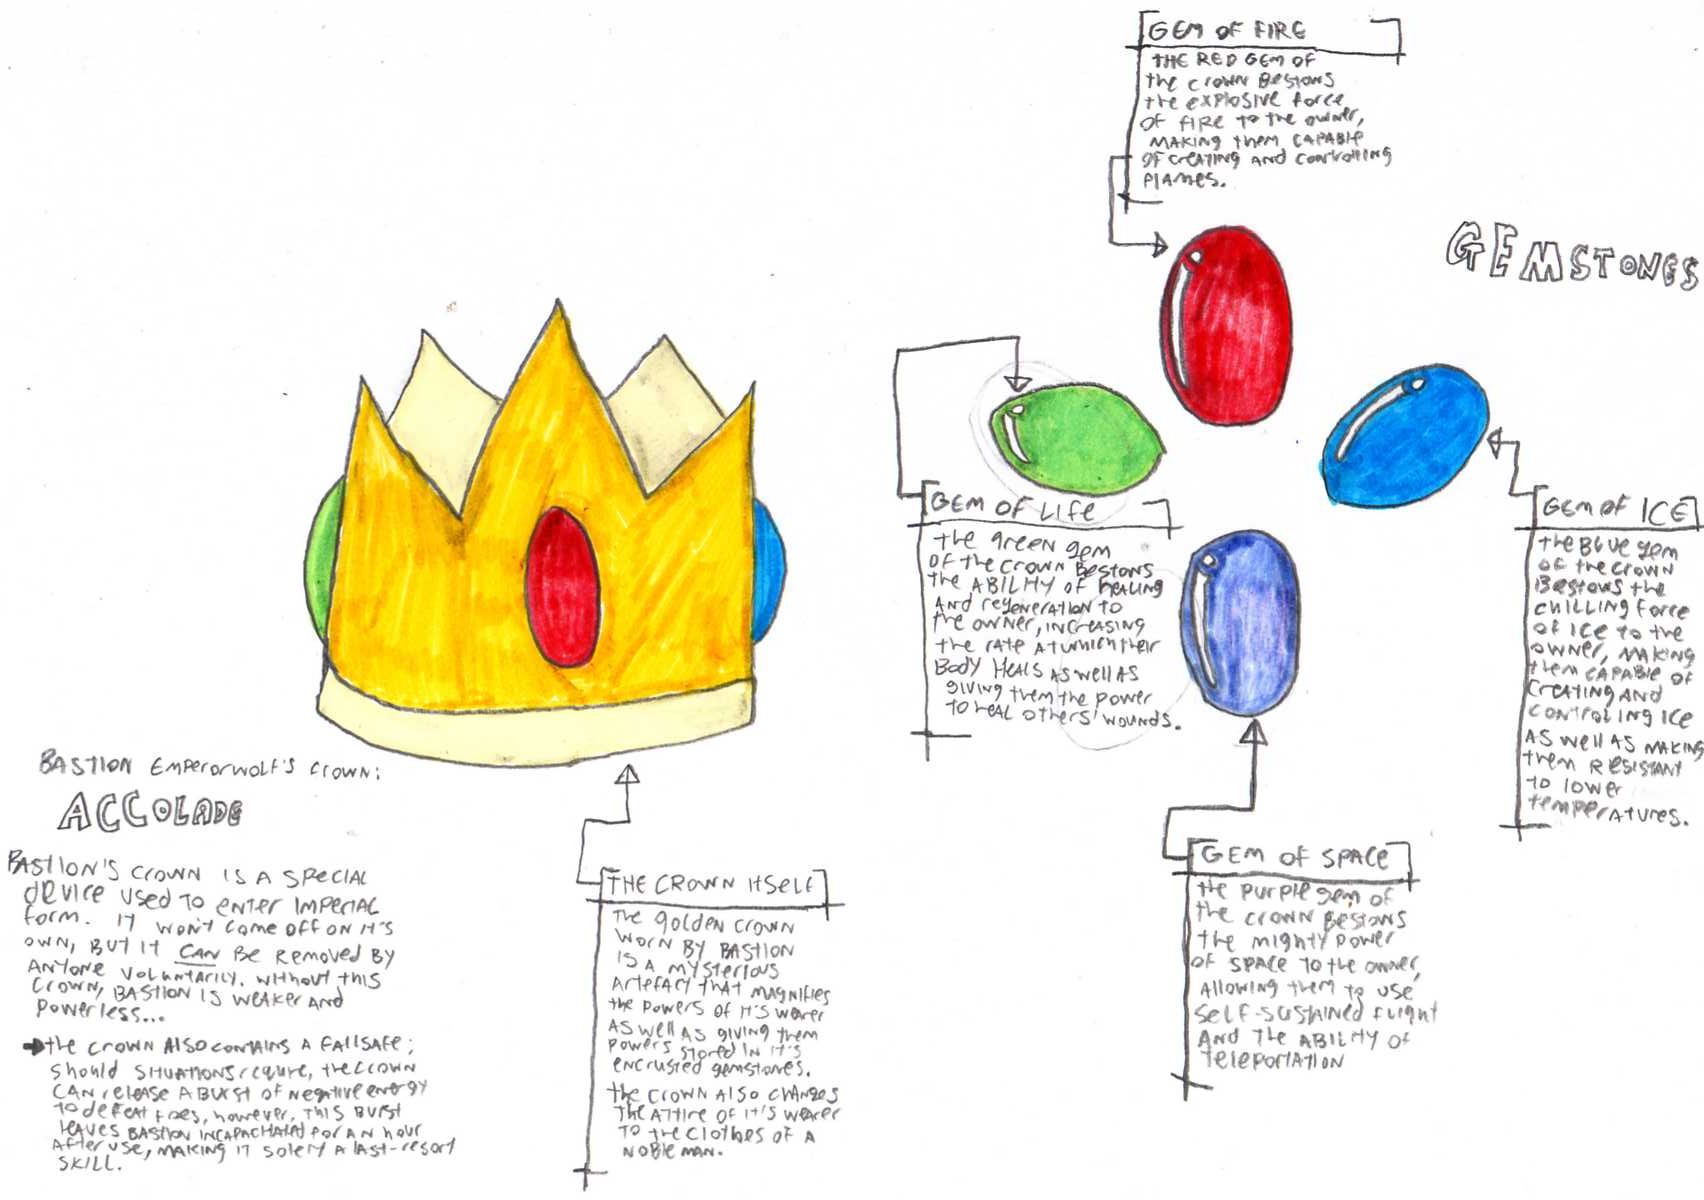 BASTION EMPERORWOLF'S CROWN:
ACCOLADE
BASTION'S CROWN IS A SPECIAL
DEVICE USED TO ENTER IMPERIAL
FORM. IT WON'T COME OFF ON IT'S
OWN, BUT IT CAN BE REMOVED BY
ANYONE VOLUNTARILY. WITHOUT THIS
CROWN, BASTION IS WEAKER AND
POWERLESS...
THE CROWN ALSO CONTAINS A FAILSAFE;
SHOULD SITUATIONS REQUIRE, THE CROWN
CAN RELEASE A BURST OF NEGATIVE ENERGY
TO DEFEAT FOES, HOWEVER, THIS BURST
LEAVES BASTION INCAPACITATED FOR AN HOUR
AFTER USE, MAKING IT SOLELY A LAST-RESORT
SKILL.
THE CROWN ITSELF
THE GOLDEN CROWN
WORN BY BASTION
IS A MYSTERIOUS
ARTEFACT THAT MAGNIFIES
THE POWERS OF IT'S WEARER
AS WELL AS GIVING THEM
POWERS STORED IN IT'S
ENCRUSTED GEMSTONES.
THE CROWN ALSO CHANGES
THE ATTIRE OF IT'S WEARER
TO THE CLOTHES OF A
NOBLE MAN.
GEMSTONES
GEM OF FIRE
THE RED GEM OF
THE CROWN BESTOWS
THE EXPLOSIVE FORCE
OF FIRE TO THE OWNER,
MAKING THEM CAPABLE
OF CREATING AND CONTROLLING
FLAMES.
GEM OF LIFE
THE GREEN GEM
OF THE CROWN BESTOWS
THE ABILITY OF HEALING
AND REGENERATION TO
THE OWNER, INCREASING
THE RATE AT WHICH THEIR
BODY HEALS AS WELL AS
GIVING THEM THE POWER
TO HEAL OTHERS' WOUNDS.
GEM OF ICE
THE BLUE GEM
OF THE CROWN
BESTOWS THE
CHILLING FORCE
OF ICE TO THE
OWNER, MAKING
THEM CAPABLE OF
CREATING AND
CONTROLING ICE
AS WELL AS MAKING
THEM RESISTANT
TO LOWER
TEMPERATURES.
GEM OF SPACE
THE PURPLE GEM OF
THE CROWN BESTOWS
THE MIGHTY POWER
OF SPACE TO THE OWNER,
ALLOWING THEM TO USE
SELF-SUSTAINED FLIGHT
AND THE ABILITY OF
TELEPORTATION